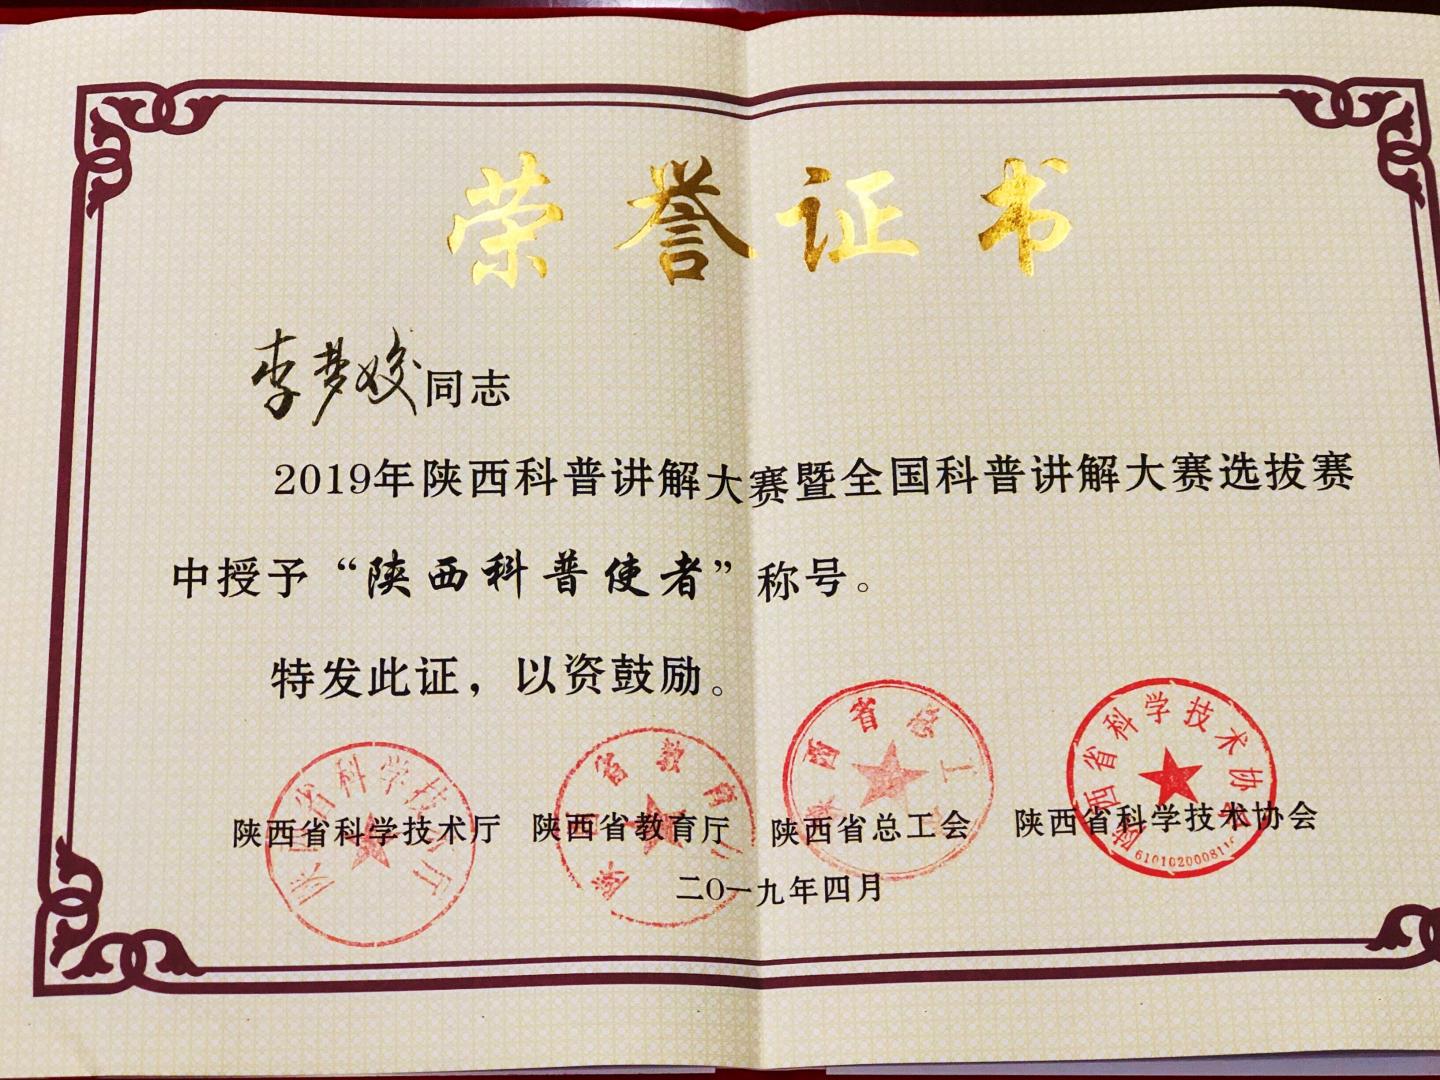 荣誉证书
李梦姣同志
2019年陕西科普讲解大赛暨全国科普讲解大赛选拔赛
中授予“陕西科普使者”称号。
特发此证，以资鼓励。
陕西省科学技术厅 陕西省教育厅 陕西省总工会 陕西省科学技术协会
二〇一九年四月
陕西省科学技术厅
陕西省教育厅
陕西省总工会
陕西省科学技术协会